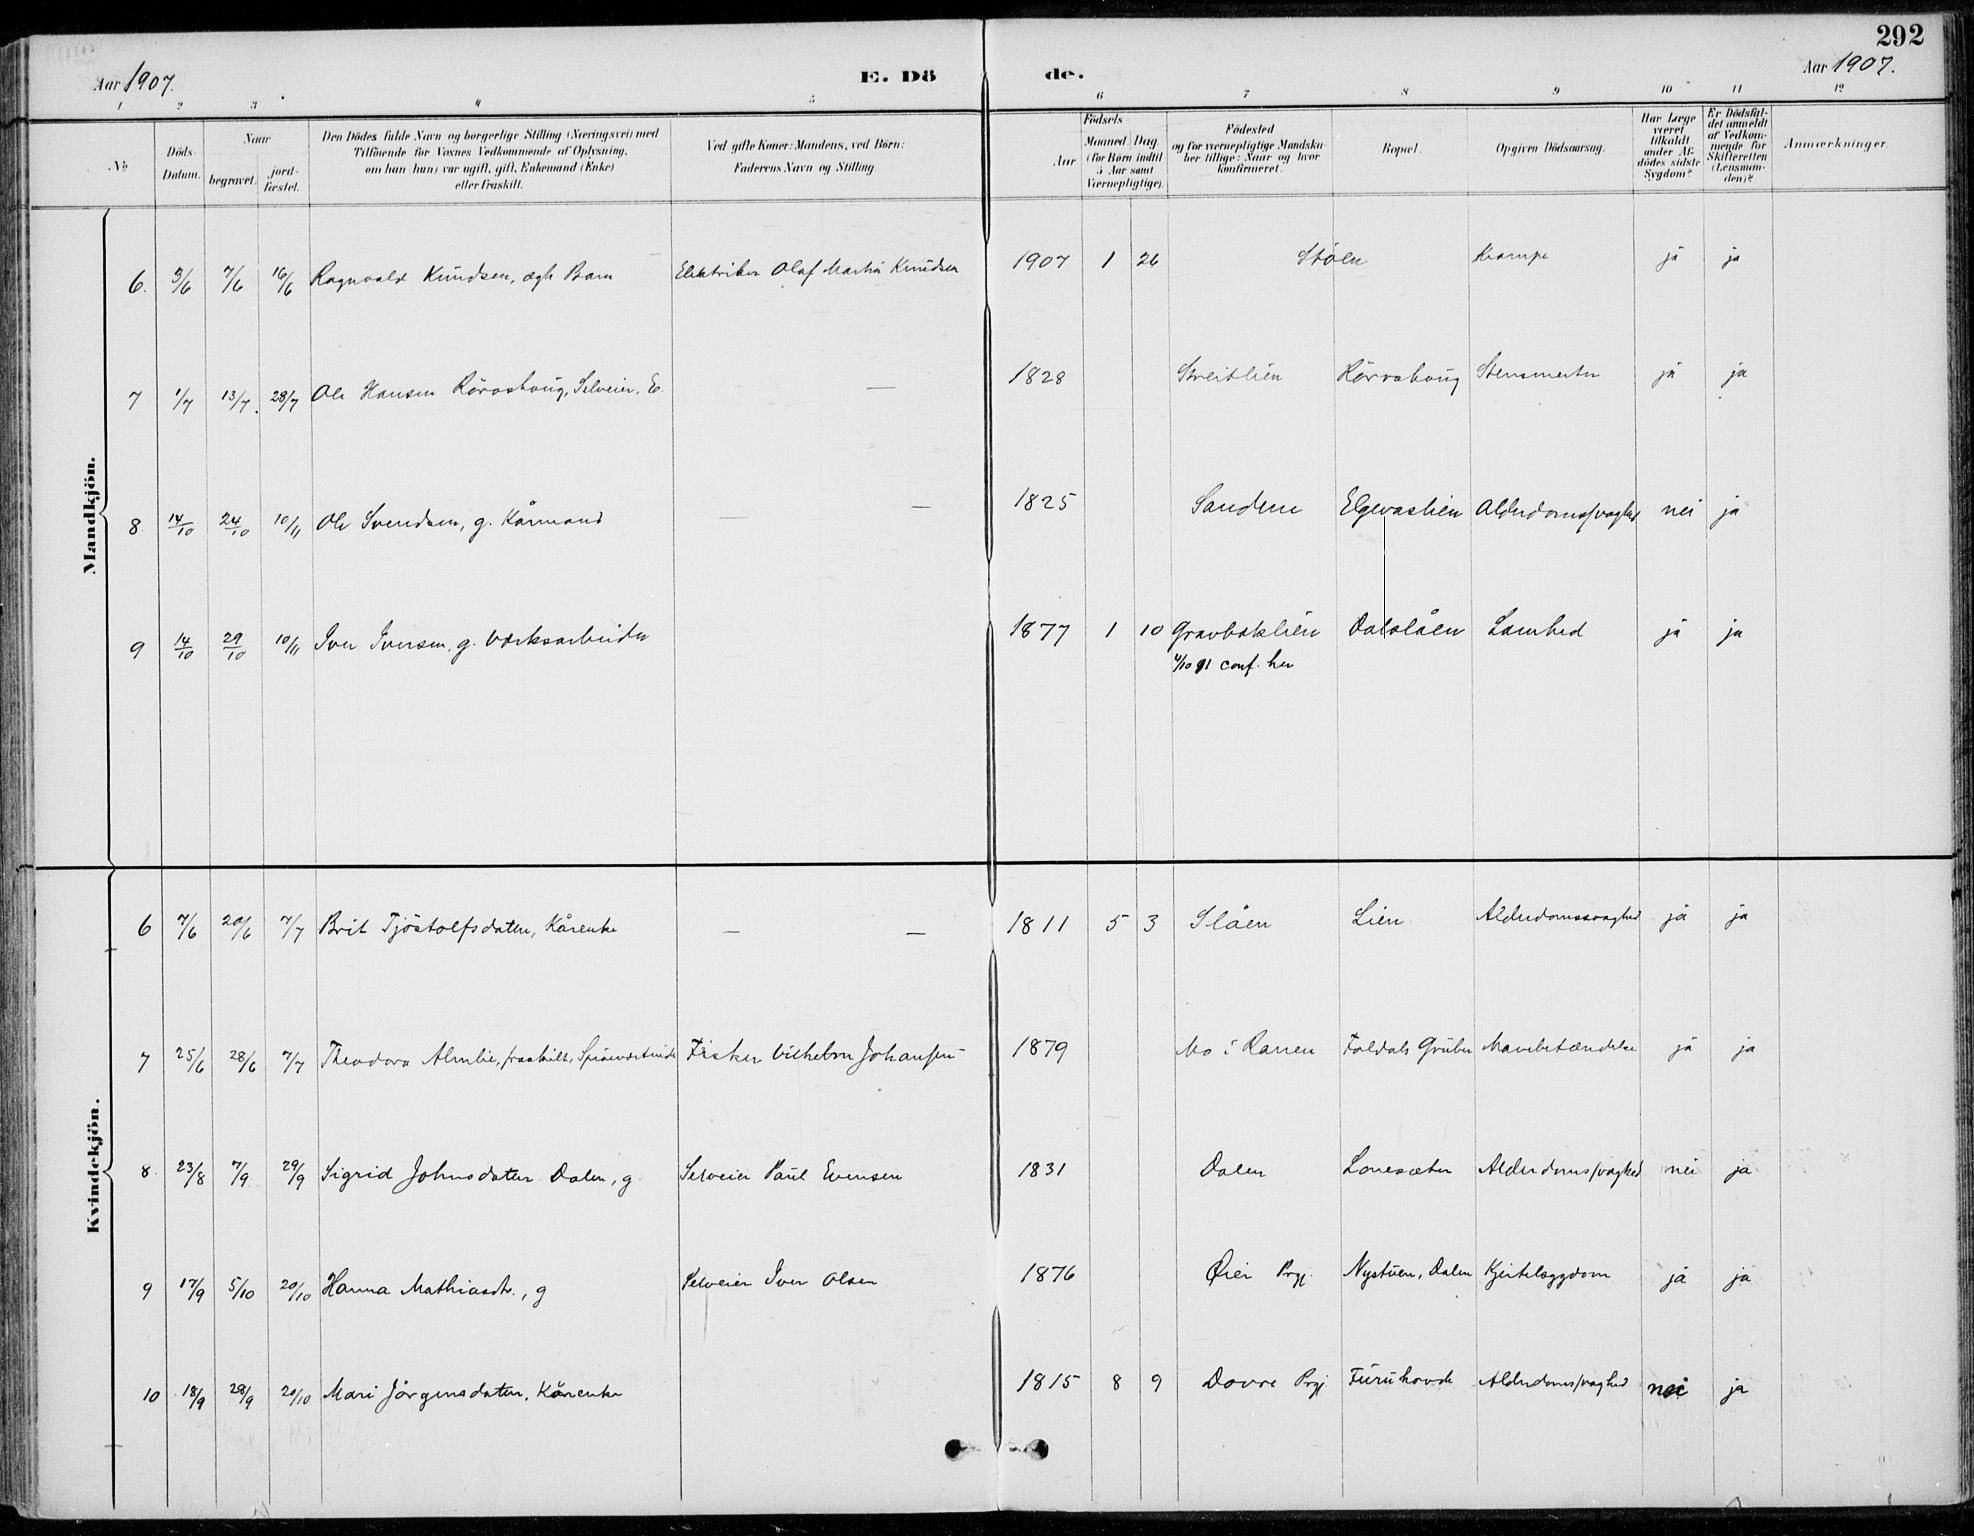 292
Aar 1907.
E. Dö de.
Aar 1907.
1 2 3 4 5 6 7 8 9 10 11 12
No
Döds-Datum.
Naar
begravet.
jord-fæstet.
Den Dödes fulde Navn og borgerlige Stilling (Næringsvei) med
Tilföiende for Voxnes Vedkommende af Oplysning,
om han (hun) var ugift, gift, Enkemand (Enke)
eller fraskilt.
Ved gifte Koner: Mandens, ved Börn:
Faderens Navn og Stilling
Födsels
Aar
Maaned. Dag.
(for Börn indtil
5 Aar samt
Værnepligtige).
Födested
og for værnepligtige Mandska-
ber tillige: Naar og hvor
konfirmeret.
Bopæl.
Opgiven Dödsaarsag.
Har Læge
været
tilkaldt
under Af-
dödes sidste
Sygdom?
Er Dödsfal-
det anmeldt
af Vedkom-
mende for
Skifteretten
(Lensman-
den)?
Anmærkninger.
Mandkjön.
6. 3/6 7/6 16/6 Ragnvald Knudsen, ægh Barn Elektriker Olaf Martin Knudsen 1907 1 26 Stöen Krampe ja ja
7 1/7 13/7. 28/7 Ole Hansen Rörvshoug, Selveier, E. — 1828 Streitlien Rörvshoug Stensmerter ja ja
8 14/10 24/10 10/11 Ole Svendsen, g. Kårmand — — 1825 Sandene Elgevaslien Alderdomssvaghed nei ja
9 14/10 29/10 10/11 Iver Iversen, g. Værksarbeider 1877 1 10 Gravbæklien Dalslåen Lamhed ja ja
4/10 91 conf. her
Kvindekjön.
6 7/6 20/6 7/7 Brit Tjöstolfsdatter, Kårenke — — 1811 5 3 Slåen Lien Alderdomssvaghed ja ja
7 25/6 28/6 7/7 Theodora Almlie, fraskilt, Fisker Vilhelm Johansen 1879 Mo i Ranen Foldals Gruber Mavebetændelse ja ja
8. 23/8 7/9 29/9 Sigrid Johnsdatter Dalen, g. Selveier Paul Evensen 1831 Dalen Lonesæter Alderdomssvaghed nei ja
9 17/9 5/10 20/10 Hanna Mathiasdtr., g Selveier Iver Olsen 1876 Öier Prgj. Nystuen, Dalen Kjertelsygdom ja ja
10 18/9 28/9 20/10 Mari Jörgensdatter, Kårenke 1815 8 9 Dovre Prgj Furuhovde Alderdomssvaghed nei ja